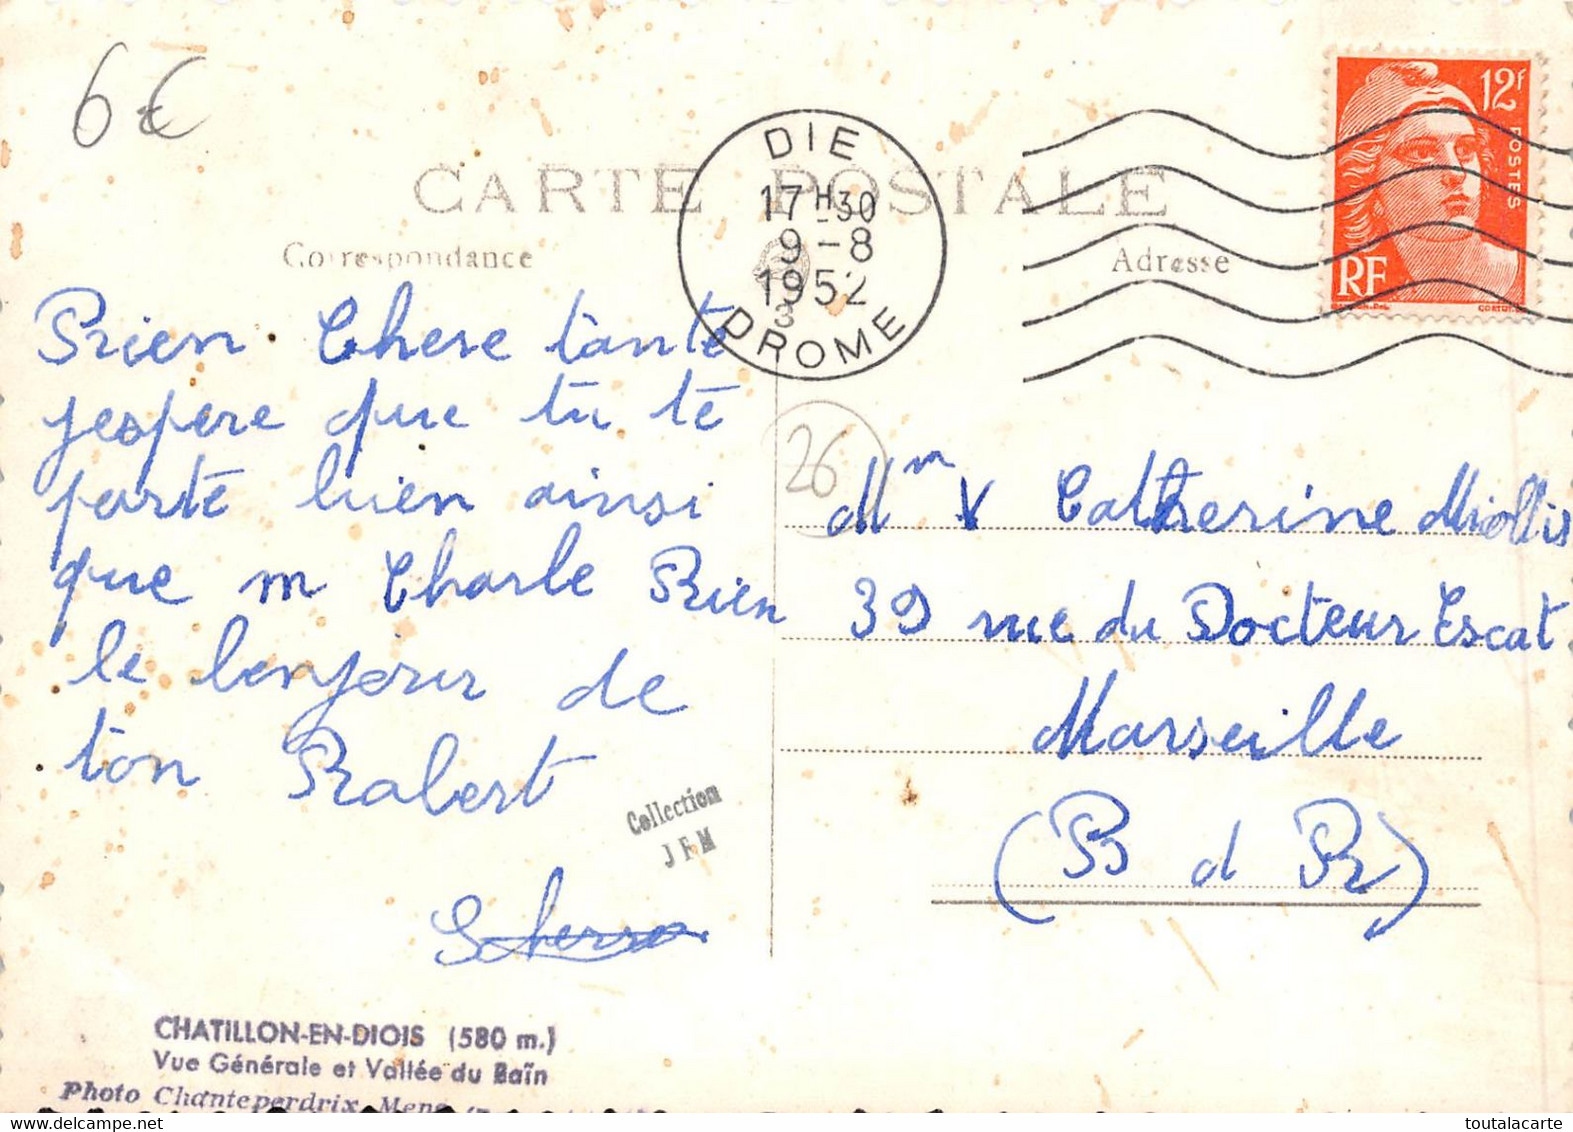 6€
CARTE POSTALE
DIE
17H30
9-8
1952
3
DROME
12f
POSTES
RF
Correspondance
Adresse
Rien Chere tante
jespere que tu te
porte bien ainsi
que m Charle Rien
le bonjour de
ton Robert
Collection
JFM
26
Mm V Catherine Miollis
39 rue du Docteur Escat
Marseille
(B d R)
CHATILLON-EN-DIOIS (580 m.)
Vue Générale et Vallée du Baïn
Photo Chanteperdrix, Mens
www.delcampe.net
toutalacarte